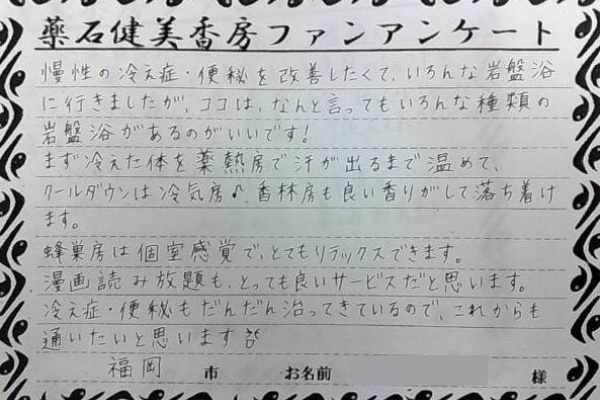 薬石健美香房ファンアンケート
慢性の冷え症・便秘を改善したくて、いろんな岩盤浴
に行きましたが、ココは、なんと言ってもいろんな種類の
岩盤浴があるのがいいです!
まず冷えた体を薬熱房で汗が出るまで温めて、
クールダウンは冷気房♪香林房も良い香りがして落ち着け
ます。
蜂巣房は個室感覚で、とてもリラックスできます。
漫画読み放題も、とっても良いサービスだと思います。
冷え症・便秘もだんだん治ってきているので、これからも
通いたいと思います
福岡 市 お名前 様